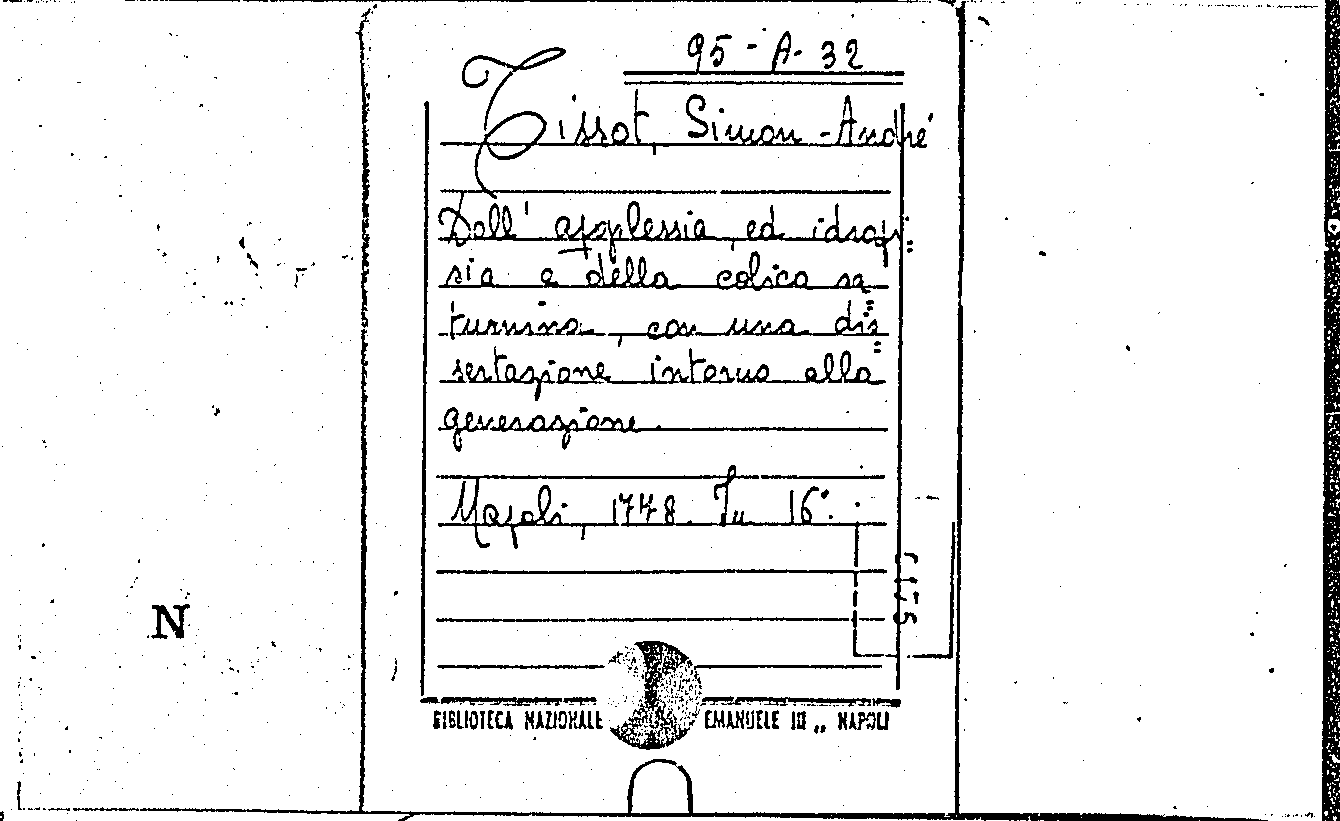 95 - A - 32
Tissot, Simon-André
Dall' apoplessia, ed idropi=
sia e della colica sa=
turnina, con una dis=
sertazione intorno alla
generazione.
Napoli, 1778. In 16°.
N
BIBLIOTECA NAZIONALE EMANUELE III „ NAPOLI